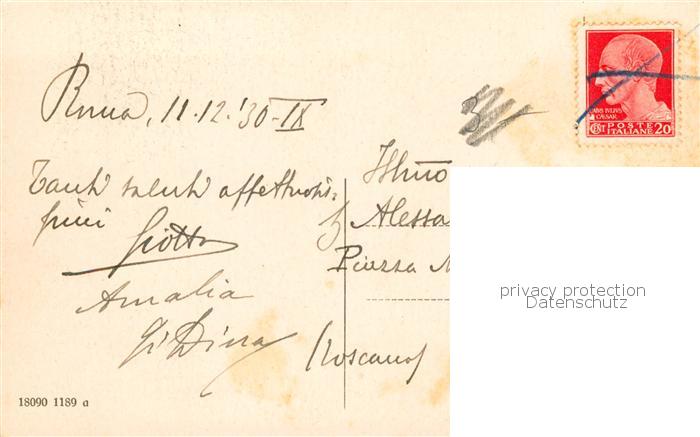 Roma, 11-12-'30-IX
3
Tanti saluti affettuosis-
simi
Giotto
Amalia
Illmo
Alessa
Piazza M
(Toscana)
CAIVS IVLIVS
CAESAR
CENT POSTE
ITALIANE 20
privacy protection
Datenschutz
18090 1189 a